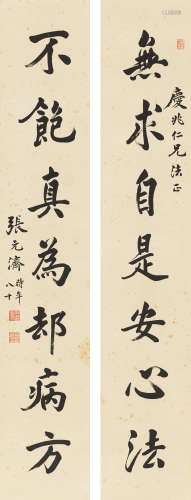 慶兆仁兄法正
無求自是安心法
不飽真為却病方
張元濟時年
八十